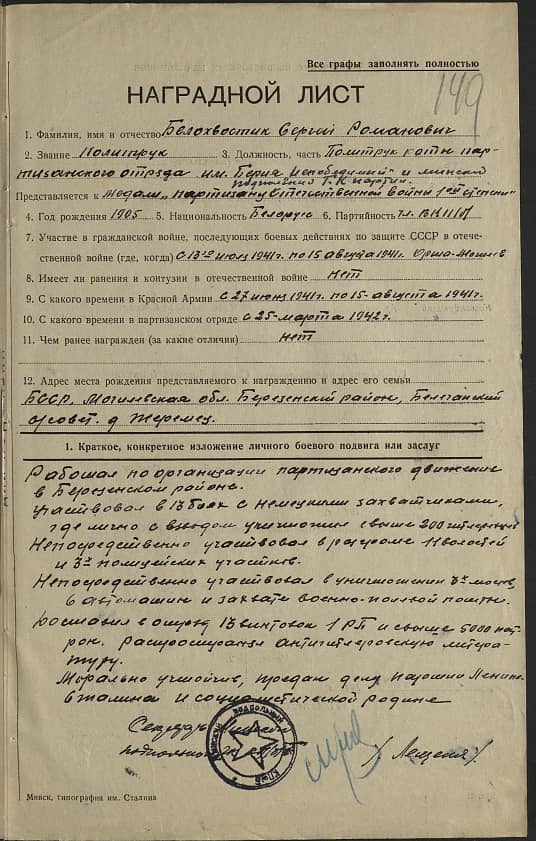 Все графы заполнять полностью
149
НАГРАДНОЙ ЛИСТ
1. Фамилия, имя и отчество Белохвостик Сергей Романович
2. Звание Политрук 3. Должность, часть Политрук роты пар-
тизанского отряда им. Берия "Непобедимый" и минский
подпольный Г.К партии.
Представляется к Медали "партизану Отечественной войны 1ой степени"
4. Год рождения 1905 5. Национальность Белорус 6. Партийность чл. ВКП/б/
7. Участие в гражданской войне, последующих боевых действиях по защите СССР в отече-
ственной войне (где, когда) с 13го июля 1941г. по 15 августа 1941г. Орша-
8. Имеет ли ранения и контузии в отечественной войне нет
9. С какого времени в Красной Армии с 27 июня 1941г. по 15-августа 1941г.
10. С какого времени в партизанском отряде с 25-марта 1942г.
11. Чем ранее награжден (за какие отличия) нет
12. Адрес места рождения представляемого к награждению и адрес его семьи
БССР, Могилевская обл. Березенский район,
с/совет. д Жеремец.
1. Краткое, конкретное изложение личного боевого подвига или заслуг
Работал по организации партизанского движение
в Березенском районе.
Участвовал в 13 боях с немецкими захватчиками,
где лично с взводом уничтожил свыше 200 гитлеровцев
Непосредственно участвовал в разгроме 11 волостей
и 3х полицейских участков.
Непосредственно участвовал в уничтожении 3х мостов,
6 автомашин и захвате военно-полевой почты.
Доставил в отряд 13 винтовок 1 РП и свыше 5000 пат-
рон. Распространял антигитлеровскую литера-
туру.
Морально устойчив, предан делу партии Ленина
Сталина и социалистической родине
Секретарь
подпольного
Минск, типография им. Сталина